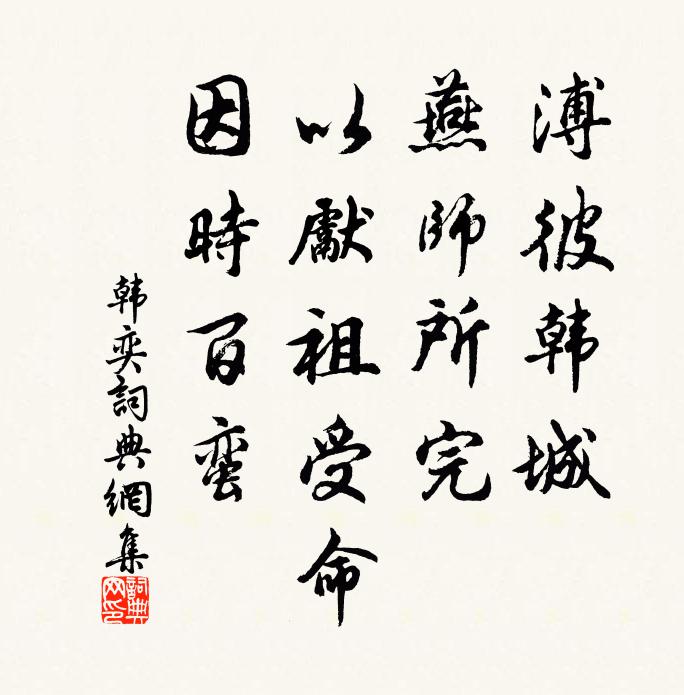 溥彼韩城
燕師所完
以獻祖受命
因時百蛮
韩奕詞典網集
詞典网印